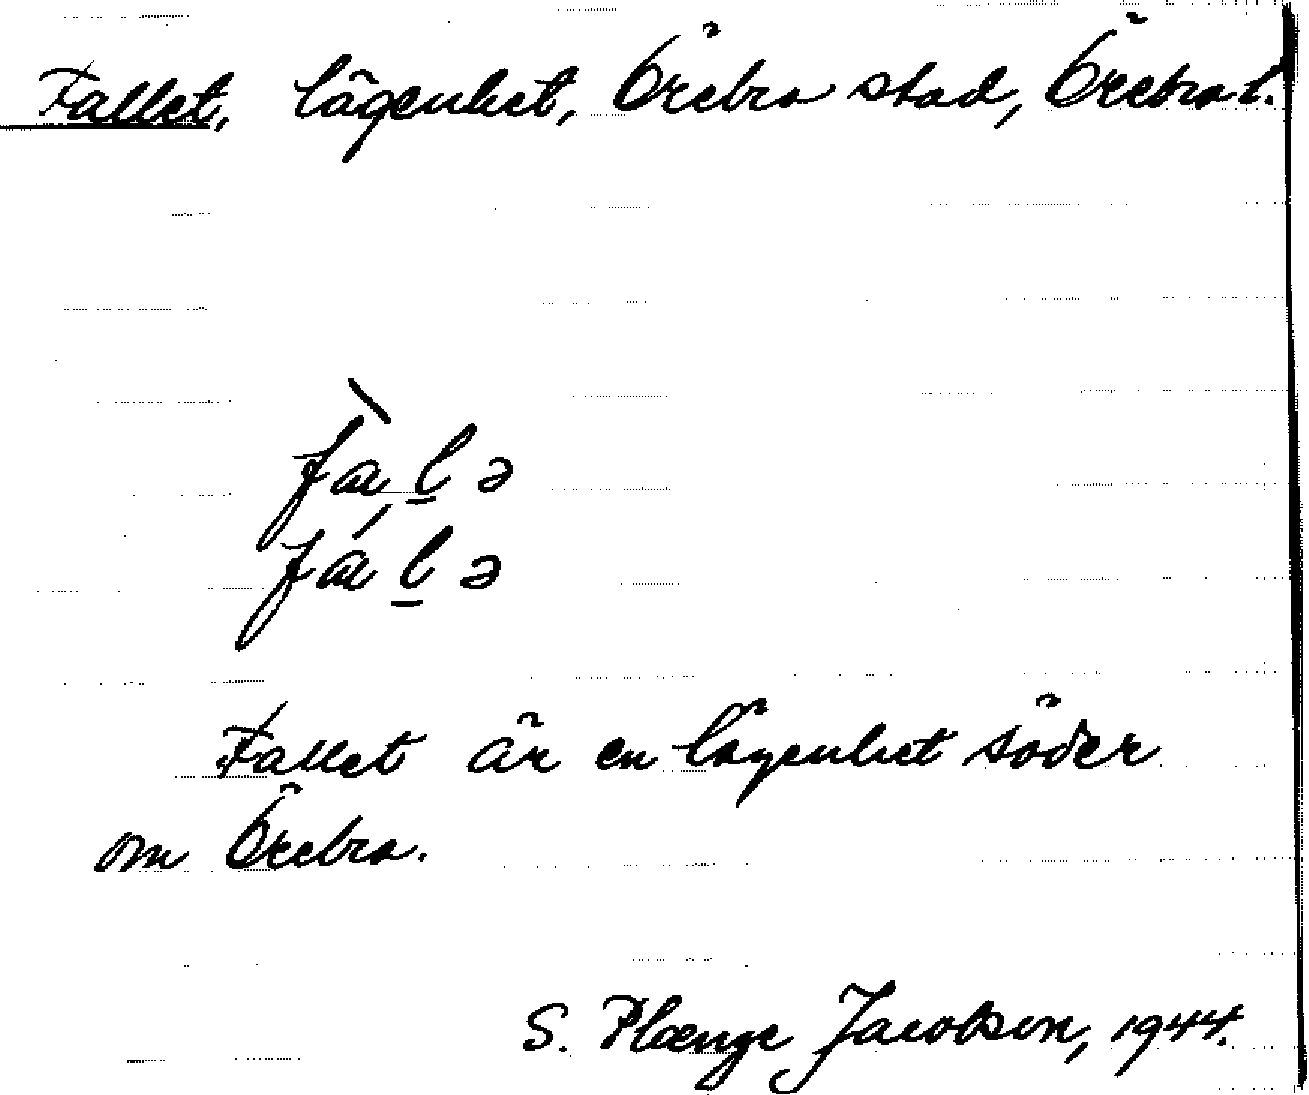 Fallet, lägenhet, Örebro stad, Örebro l.
fàl̲ə
fál̲ə
Fallet är en lägenhet söder
om Örebro.
S. Plænge Jacobson, 1944.